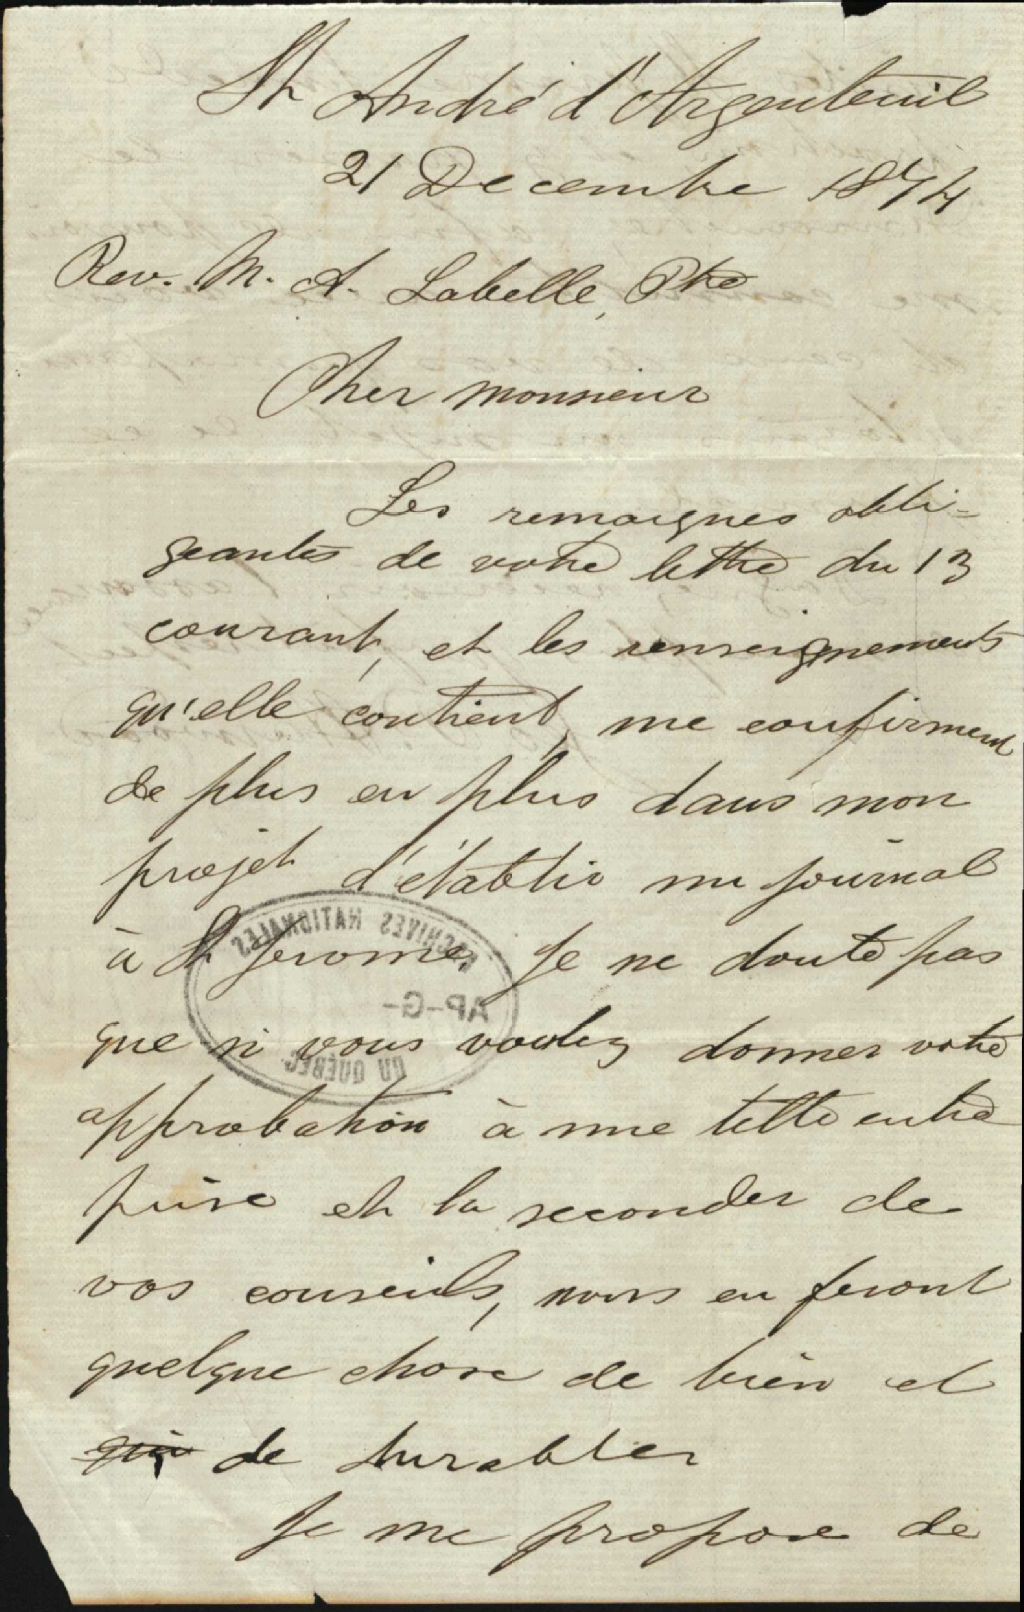 St André d'Argenteuil
21 Decembre 1874
Rev. M. A. Labelle, Ptre
Cher monsieur
Les remarques obli-
geantes de votre lettre du 13
courant, et les renseignements
qu'elle contient, me confirment
de plus en plus dans mon
projet d'établir un journal
à St Jerome. Je ne doute pas
que si vous voulez donner votre
approbation à une telle entre
prise et la seconder de
vos conseils, nous en feront
quelque chose de bien et
de durable
Je me propose de
ARCHIVES NATIONALES
AP-G-
DU QUÉBEC